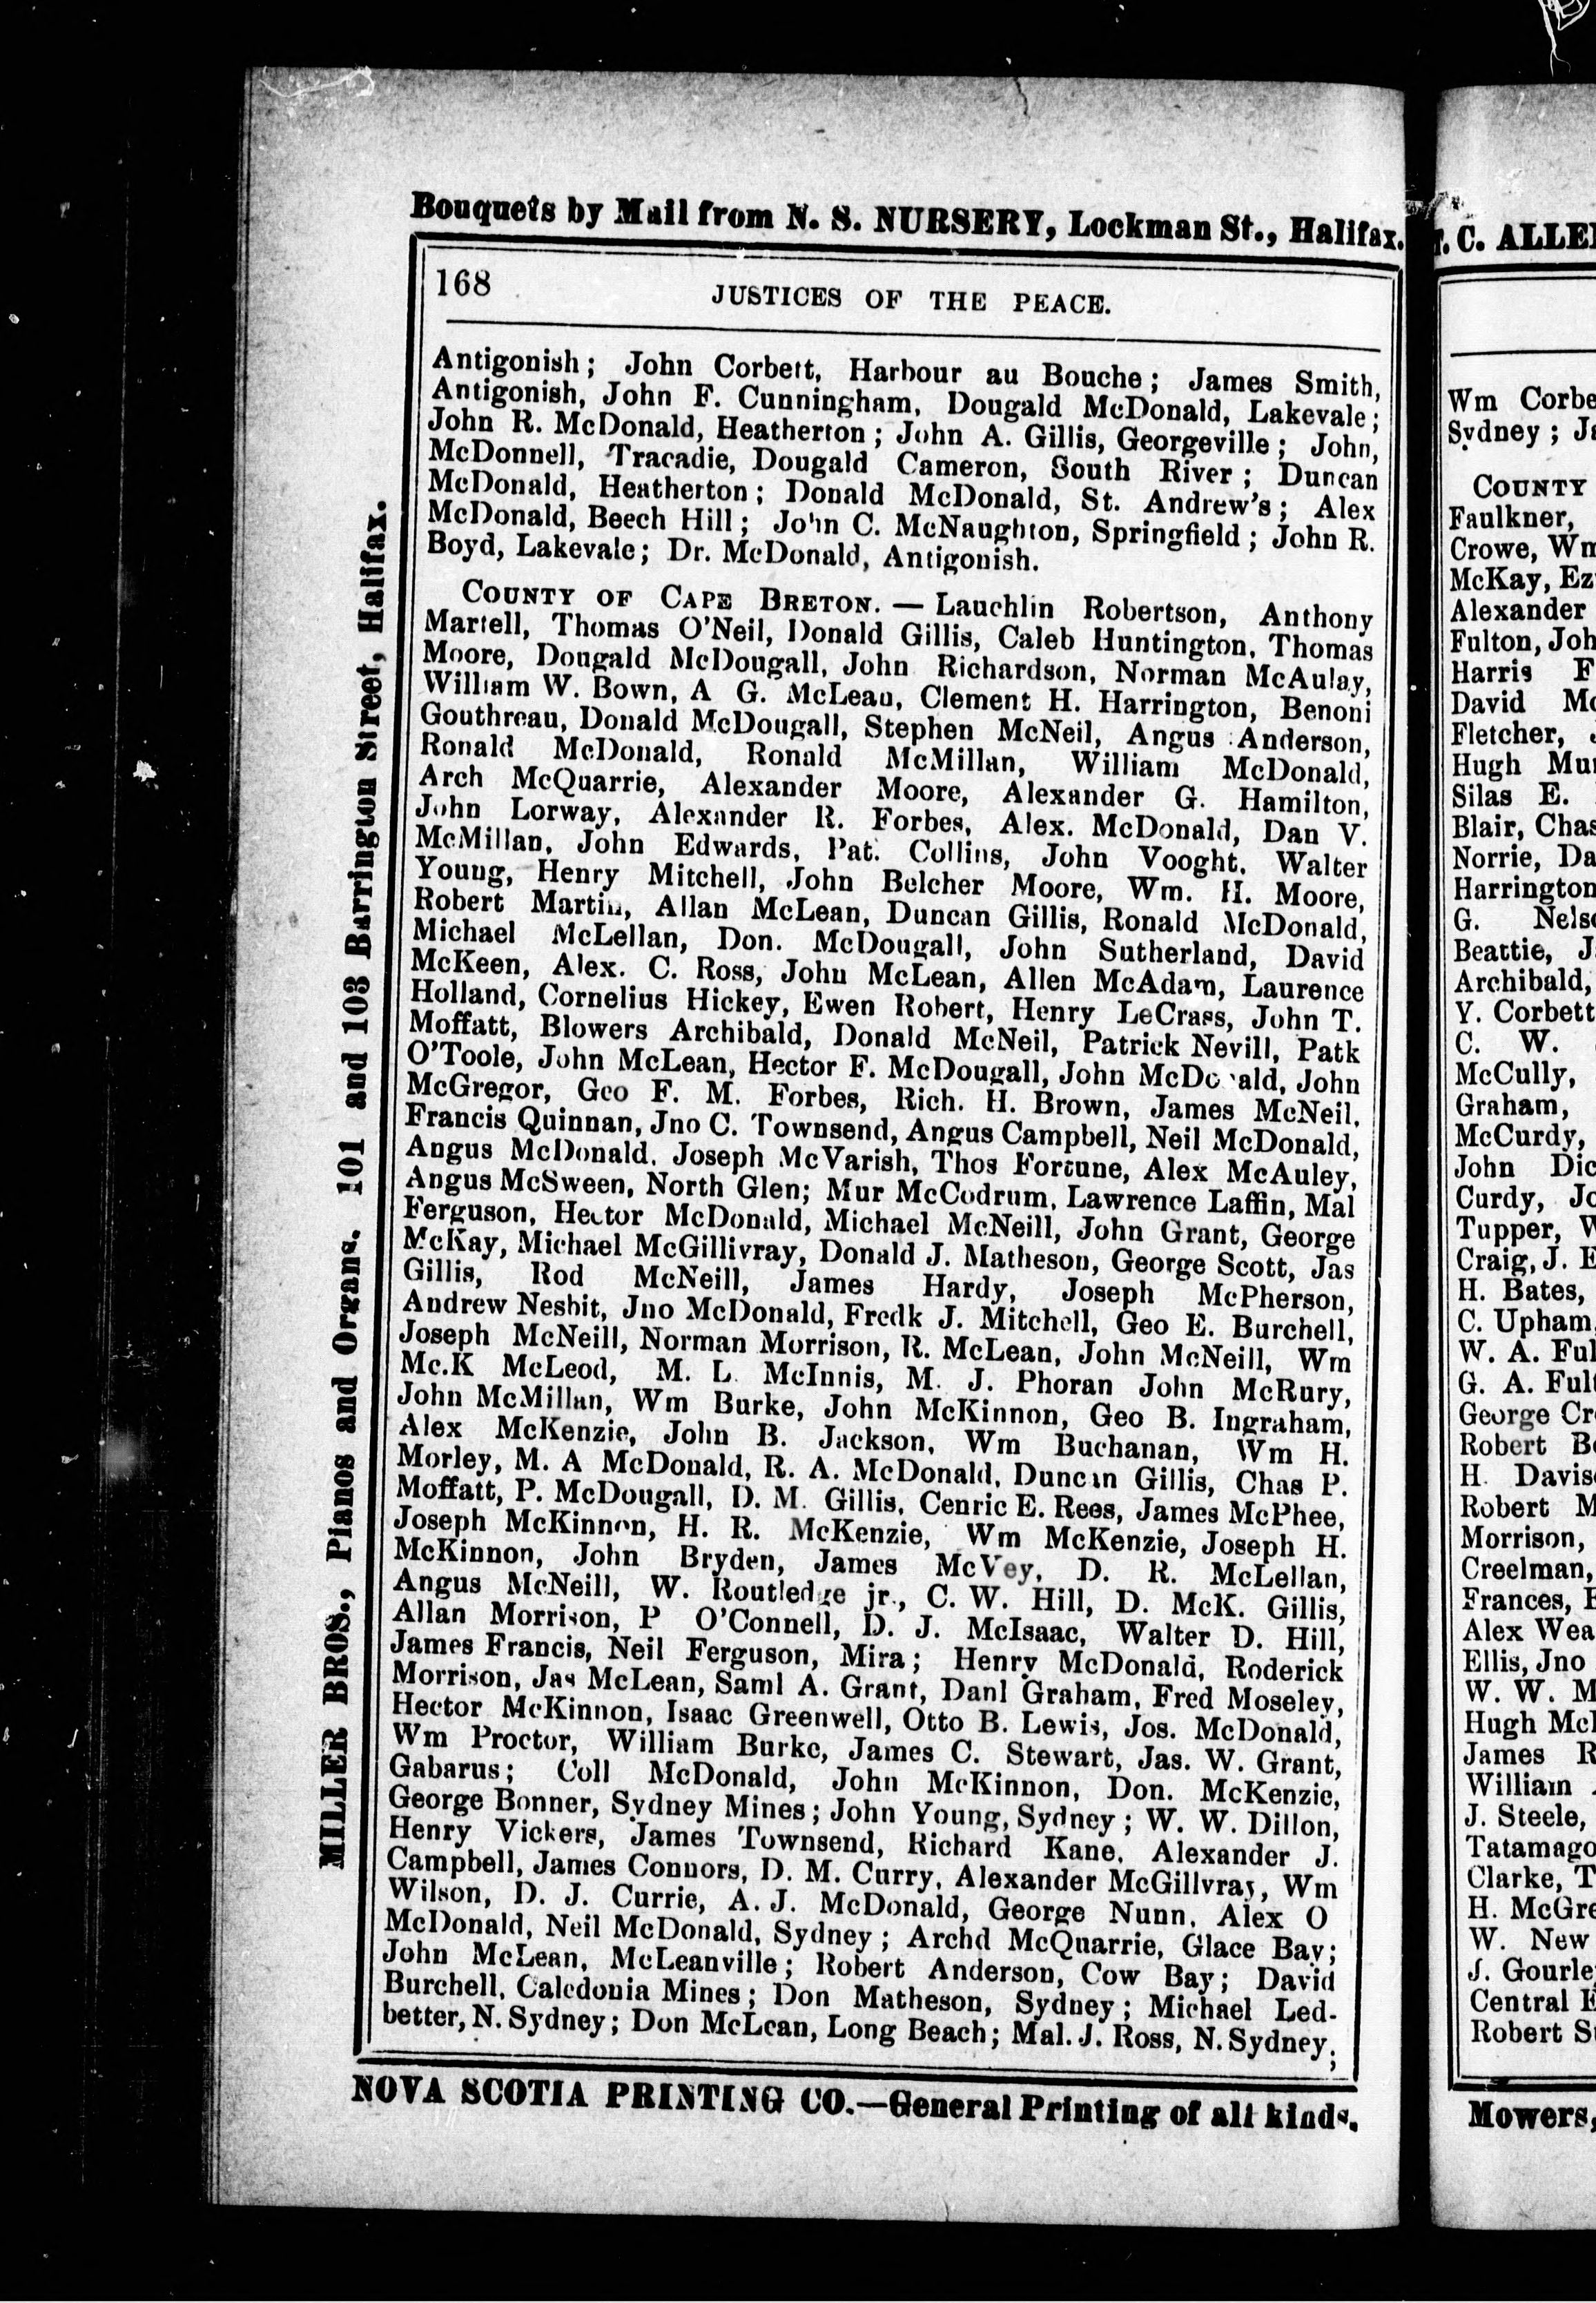 Bouquets by Mail from N. S. NURSERY, Lockman St., Halifax.
168 JUSTICES OF THE PEACE.
Antigonish; John Corbett, Harbour au Bouche; James Smith,
Antigonish, John F. Cunningham, Dougald McDonald, Lakevale;
John R. McDonald, Heatherton; John A. Gillis, Georgeville; John,
McDonnell, Tracadie, Dougald Cameron, South River; Duncan
McDonald, Heatherton; Donald McDonald, St. Andrew's; Alex
McDonald, Beech Hill; John C. McNaughton, Springfield; John R.
Boyd, Lakevale; Dr. McDonald, Antigonish.
COUNTY OF CAPE BRETON. — Lauchlin Robertson, Anthony
Martell, Thomas O'Neil, Donald Gillis, Caleb Huntington, Thomas
Moore, Dougald McDougall, John Richardson, Norman McAulay,
William W. Bown, A G. McLean, Clement H. Harrington, Benoni
Gouthreau, Donald McDougall, Stephen McNeil, Angus Anderson,
Ronald McDonald, Ronald McMillan, William McDonald,
Arch McQuarrie, Alexander Moore, Alexander G. Hamilton,
John Lorway, Alexander R. Forbes, Alex. McDonald, Dan V.
McMillan, John Edwards, Pat. Collins, John Vooght, Walter
Young, Henry Mitchell, John Belcher Moore, Wm. H. Moore,
Robert Martin, Allan McLean, Duncan Gillis, Ronald McDonald,
Michael McLellan, Don. McDougall, John Sutherland, David
McKeen, Alex. C. Ross, John McLean, Allen McAdam, Laurence
Holland, Cornelius Hickey, Ewen Robert, Henry LeCrass, John T.
Moffatt, Blowers Archibald, Donald McNeil, Patrick Nevill, Patk
O'Toole, John McLean, Hector F. McDougall, John McDonald, John
McGregor, Geo F. M. Forbes, Rich. H. Brown, James McNeil,
Francis Quinnan, Jno C. Townsend, Angus Campbell, Neil McDonald,
Angus McDonald, Joseph McVarish, Thos Fortune, Alex McAuley,
Angus McSween, North Glen; Mur McCodrum, Lawrence Laffin, Mal
Ferguson, Hector McDonald, Michael McNeill, John Grant, George
McKay, Michael McGillivray, Donald J. Matheson, George Scott, Jas
Gillis, Rod McNeill, James Hardy, Joseph McPherson,
Andrew Nesbit, Jno McDonald, Fredk J. Mitchell, Geo E. Burchell,
Joseph McNeill, Norman Morrison, R. McLean, John McNeill, Wm
Mc.K McLeod, M. L. McInnis, M. J. Phoran John McRury,
John McMillan, Wm Burke, John McKinnon, Geo B. Ingraham,
Alex McKenzie, John B. Jackson, Wm Buchanan, Wm H.
Morley, M. A McDonald, R. A. McDonald, Duncan Gillis, Chas P.
Moffatt, P. McDougall, D. M. Gillis, Cenric E. Rees, James McPhee,
Joseph McKinnon, H. R. McKenzie, Wm McKenzie, Joseph H.
McKinnon, John Bryden, James McVey, D. R. McLellan,
Angus McNeill, W. Routledge jr., C. W. Hill, D. McK. Gillis,
Allan Morrison, P O'Connell, D. J. McIsaac, Walter D. Hill,
James Francis, Neil Ferguson, Mira; Henry McDonald, Roderick
Morrison, Jas McLean, Saml A. Grant, Danl Graham, Fred Moseley,
Hector McKinnon, Isaac Greenwell, Otto B. Lewis, Jos. McDonald,
Wm Proctor, William Burke, James C. Stewart, Jas. W. Grant,
Gabarus; Coll McDonald, John McKinnon, Don. McKenzie,
George Bonner, Sydney Mines; John Young, Sydney; W. W. Dillon,
Henry Vickers, James Townsend, Richard Kane, Alexander J.
Campbell, James Connors, D. M. Curry, Alexander McGillvray, Wm
Wilson, D. J. Currie, A. J. McDonald, George Nunn, Alex O
McDonald, Neil McDonald, Sydney; Archd McQuarrie, Glace Bay;
John McLean, McLeanville; Robert Anderson, Cow Bay; David
Burchell, Caledonia Mines; Don Matheson, Sydney; Michael Led-
better, N. Sydney; Don McLean, Long Beach; Mal. J. Ross, N. Sydney;
NOVA SCOTIA PRINTING CO.—General Printing of all kinds.
MILLER BROS., Pianos and Organs. 101 and 103 Barrington Street, Halifax.
C. ALLE
Wm Corbe
Sydney;
COUNTY
Faulkner,
Crowe, Wm
McKay, Ez
Alexander
Fulton, Joh
Harris F
David Mc
Fletcher,
Hugh Mu
Silas E.
Blair, Chas
Norrie, Da
Harrington
G. Nels
Beattie, J
Archibald,
Y. Corbett
C. W.
McCully,
Graham,
McCurdy,
John Dic
Curdy, Jo
Tupper, W
Craig, J. E
H. Bates,
C. Upham,
W. A. Ful
G. A. Ful
George Cr
Robert B
H. Davis
Robert M
Morrison,
Creelman,
Frances, E
Alex Wea
Ellis, Jno
W. W. M
Hugh Mc
James R
William
J. Steele,
Tatamago
Clarke, T
H. McGre
W. New
J. Gourle
Central E
Robert S
Mowers,